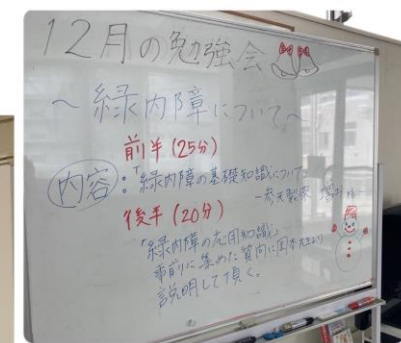 12月の勉強会
～緑内障について～
前半(25分)
内容:「緑内障の基礎知識について」
-参天製薬
後半(20分)
「緑内障の応用知識」
事前に集めた質問に
説明して頂く。